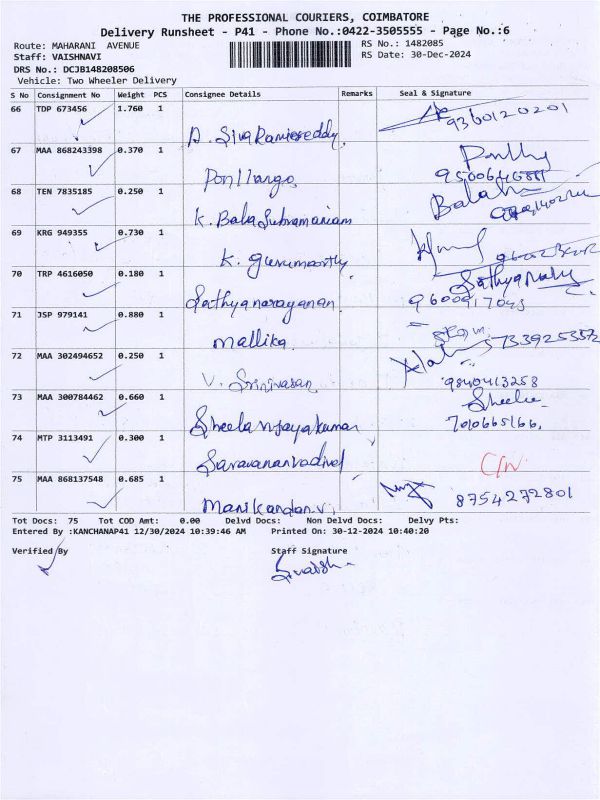 THE PROFESSIONAL COURIERS, COIMBATORE
Delivery Runsheet - P41 - Phone No.:0422-3505555 - Page No.:6
Route: MAHARANI AVENUE RS No.: 1482085
Staff: VAISHNAVI RS Date: 30-Dec-2024
DRS No.: DCJB148208506
Vehicle: Two Wheeler Delivery
S No Consignment No Weight PCS Consignee Details Remarks Seal & Signature
66 TDP 673456 1.760 1
9360120201
67 MAA 868243398 0.370 1
Ponllango
68 TEN 7835185 0.250 1
K. BalaSubramaniam
69 KRG 949355 0.730 1
K. gurumoorthy
70 TRP 4616050 0.180 1
Sathyanarayanan 9600917043
71 JSP 979141 0.880 1
Mallika 7339253572
72 MAA 302494652 0.250 1
V. Srinivasan 9840413258
73 MAA 300784462 0.660 1 Sheela
Sheela vijayakumar 7010665166
74 MTP 3113491 0.300 1
Saravananvadivel
75 MAA 868137548 0.685 1
Manikandan.v. 8754272801
Tot Docs: 75 Tot COD Amt: 0.00 Delvd Docs: Non Delvd Docs: Delvy Pts:
Entered By :KANCHANAP41 12/30/2024 10:39:46 AM Printed On: 30-12-2024 10:40:20
Verified By Staff Signature